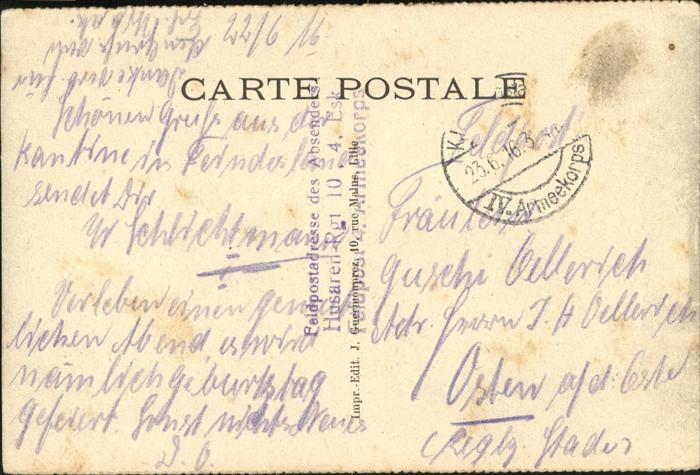 22/6 16
CARTE POSTALE
Schönen Gruß aus der
Kantine in Feindesland
sendet Dir
Schlichtmann
Verleben einen gemüt
lichen Abend es wird
nämlich Geburtstag
gefeiert. Sonst nichts Neues
D. O.
Feldpostadresse des Absenders
Husaren-Rgt 10 4. Esk.
Feldpost 4. Armeekorps
Impr.-Edit. J. Guermonprez, 10, rue Malus, Lille
23.6.16.3
IV. Armeekorps
Feldpost
Fräulein
Guschi Oellerich
Adr. Herrn J. H Oellerich
Osten a/d. Oste
(Regbz. Stade)